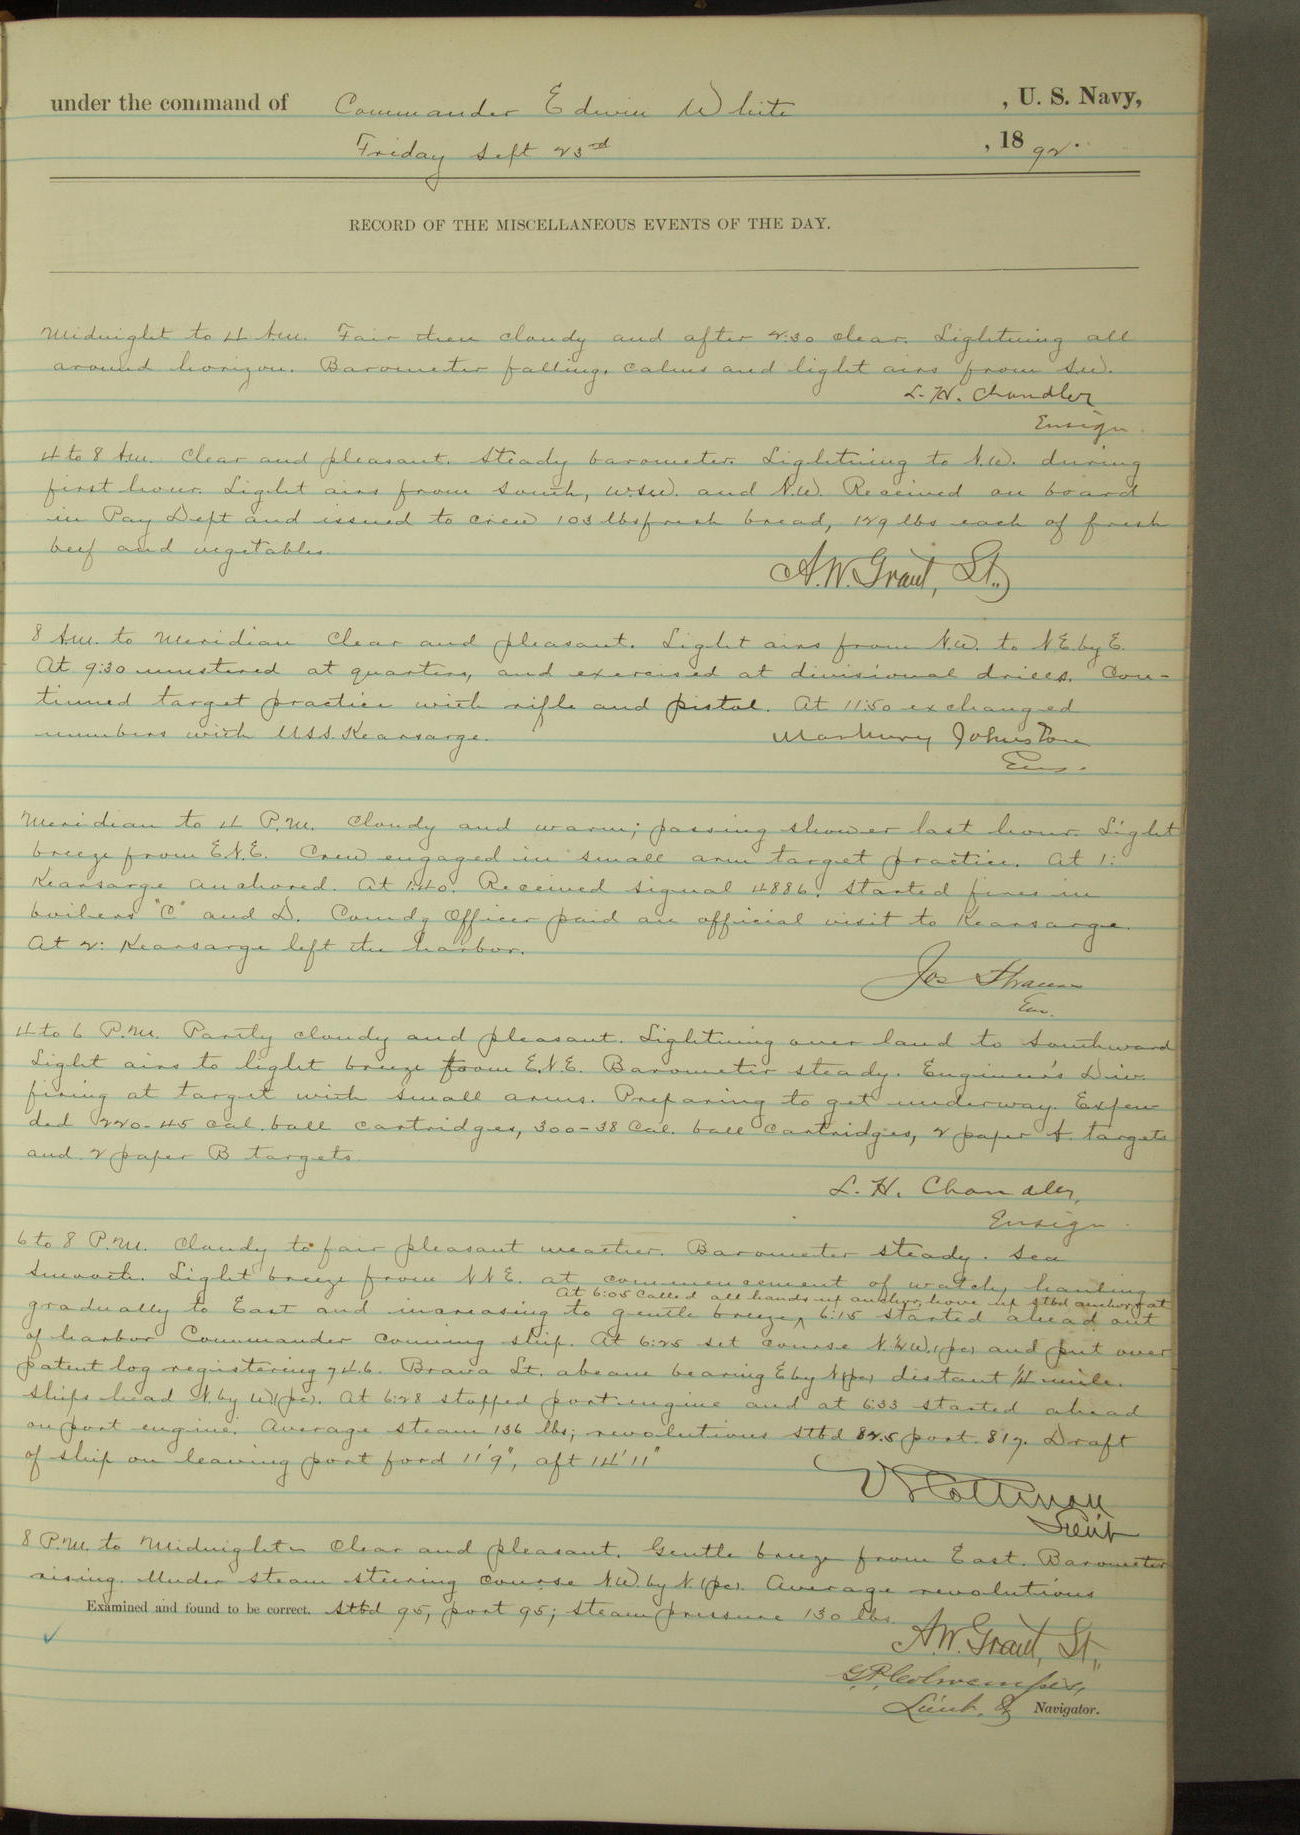 under the command of Commander Edwin White , U. S. Navy,
Friday Sept 23rd , 18 92.
RECORD OF THE MISCELLANEOUS EVENTS OF THE DAY.
Midnight to 4 A.M. Fair then cloudy and after 2:30 clear. Lightning all
around horizon. Barometer falling. Calms and light airs from S.W.
L. H. Chandler
Ensign.
4 to 8 A.M. Clear and pleasant. Steady barometer. Lightning to N.W. during
first hour. Light airs from South, W.S.W. and N.W. Received on board
in Pay Dept and issued to crew 103 lbs fresh bread, 129 lbs each of fresh
beef and vegetables.
A.W. Grant, Lt.,
8 A.M. to Meridian Clear and pleasant. Light airs from N.W. to N.E. by E.
At 9:30 mustered at quarters, and exercised at divisional drills. Con-
tinued target practice with rifle and pistol. At 11:50 exchanged
numbers with U.S.S. Kearsarge.
Marbury Johnston
Ens.
Meridian to 4 P.M. Cloudy and warm; passing shower last hour. Light
breeze from E.N.E. Crew engaged in small arm target practice. At 1:
Kearsarge anchored. At 1:40. Received signal 4886. Started fires in
boilers "C" and D. Comdg Officer paid an official visit to Kearsarge.
At 2: Kearsarge left the harbor.
Jos Strauss
Ens.
4 to 6 P.M. Partly cloudy and pleasant. Lightning over land to Southward
Light airs to light breeze from E.N.E. Barometer steady. Engineer's Div.
firing at target with small arms. Preparing to get underway. Expen-
ded 220-45 cal. ball cartridges, 300-38 Cal. ball cartridges, 2 paper A. targets
and 2 paper B targets
L. H. Chandler,
Ensign.
6 to 8 P.M. Cloudy to fair pleasant weather. Barometer steady. Sea
smooth. Light breeze from N N E. at commencement of watch, hauling
At 6:05 called all hands up anchor, hove up stbd anchor, at
gradually to East and increasing to gentle breeze, ^ 6:15 started ahead out
of harbor Commander conning ship. At 6:25 set course (pc) and put over
patent log registering 74.6. Brava Lt. abeam bearing E by N (pc) distant 1/4 mile.
ships head N. by W. (pc). At 6:28 stopped port engine and at 6:33 started ahead
on port engine. Average steam 136 lbs; revolutions stbd 82.5 port 81.7. Draft
of ship on leaving port ford 11'9", aft 14'11"
V S Cottman
Lieut
8 P.M. to Midnight - Clear and pleasant. Gentle breeze from East. Barometer
rising. Under steam steering course N.W. by N. (pc). Average revolutions
Examined and found to be correct. stbd 95, port 95; steam pressure 130 lbs.
A.W. Grant, Lt.,
G.P. Colvocoresses,
Lieut. & Navigator.